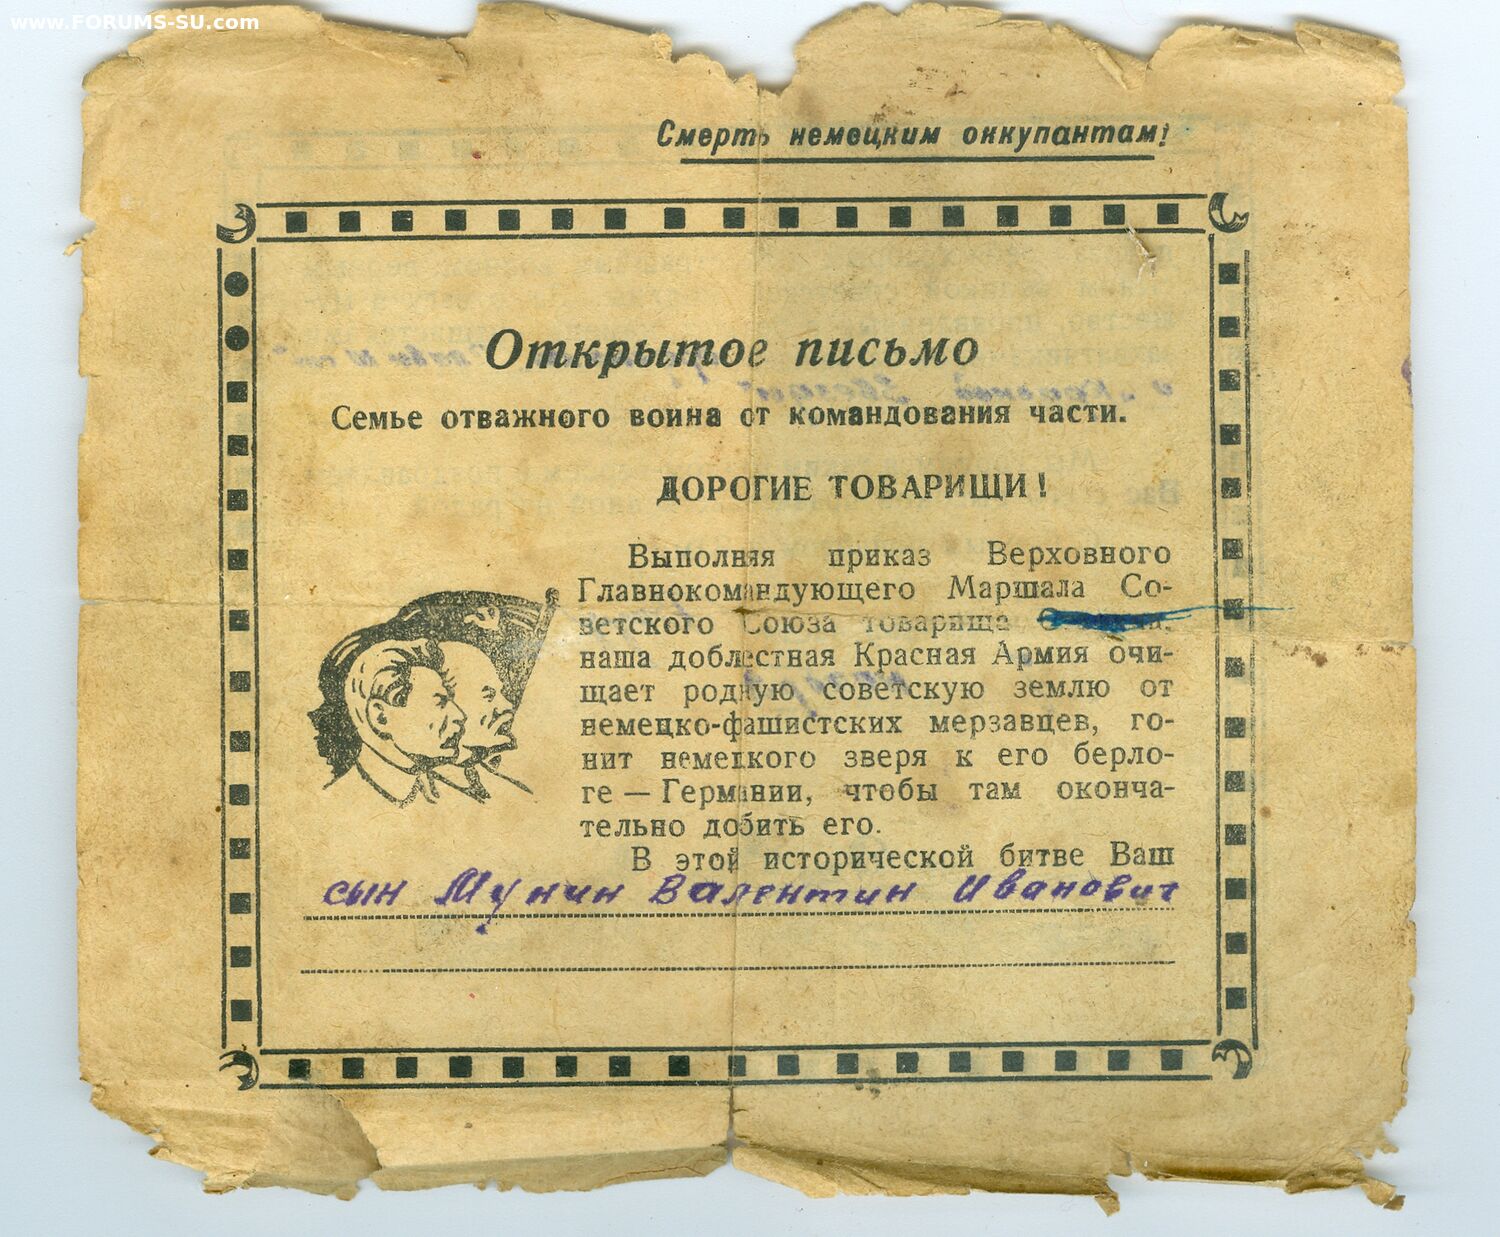 www.FORUMS-SU.com
Смерть немецким оккупантам!
Открытое письмо
Семье отважного воина от командования части.
ДОРОГИЕ ТОВАРИЩИ!
Выполняя приказ Верховного
Главнокомандующего Маршала Со-
ветского Союза товарища
наша доблестная Красная Армия очи-
щает родную советскую землю от
немецко-фашистских мерзавцев, го-
нит немецкого зверя к его берло-
ге — Германии, чтобы там оконча-
тельно добить его.
В этой исторической битве Ваш
сын Мунин Валентин Иванович